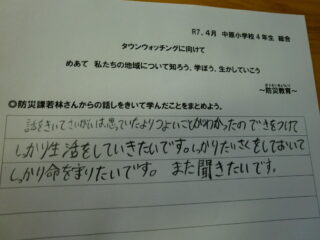 R7.4月 中原小学校4年生 総合
タウンウォッチングに向けて
めあて 私たちの地域について知ろう、学ぼう、生かしていこう
～防災教育～
◎防災課若林さんからの話しをきいて学んだことをまとめよう。
話をきいてさいがいは思っていたよりつよいことがわかったのできをつけて
しっかり生活をしていきたいです。しっかりたいさくをしておいて
しっかり命をまもりたいです。また聞きたいです。